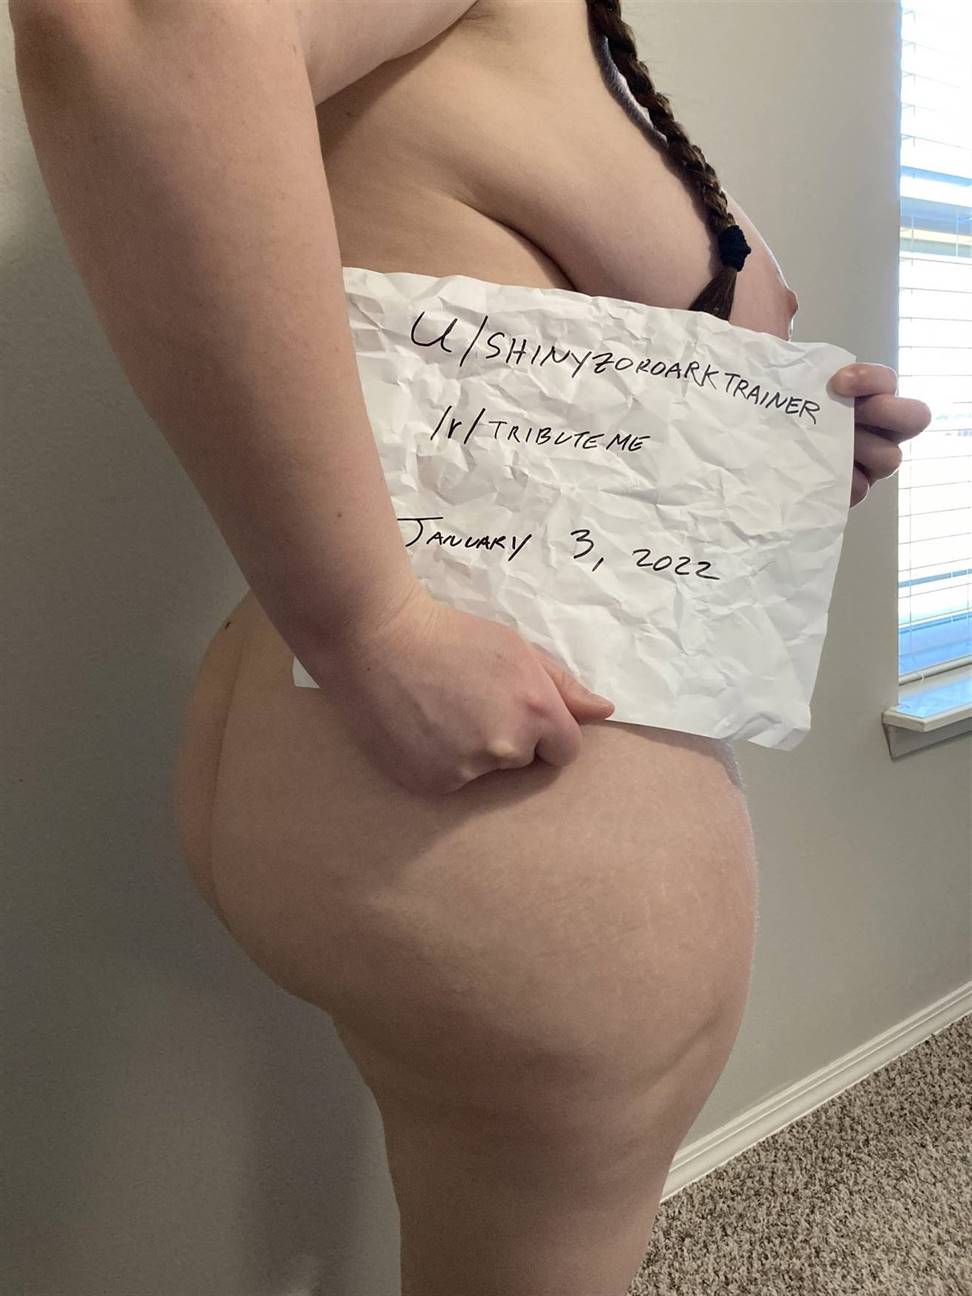 U/SHINYZOROARKTRAINER
/r/TRIBUTEME
JANUARY 3, 2022